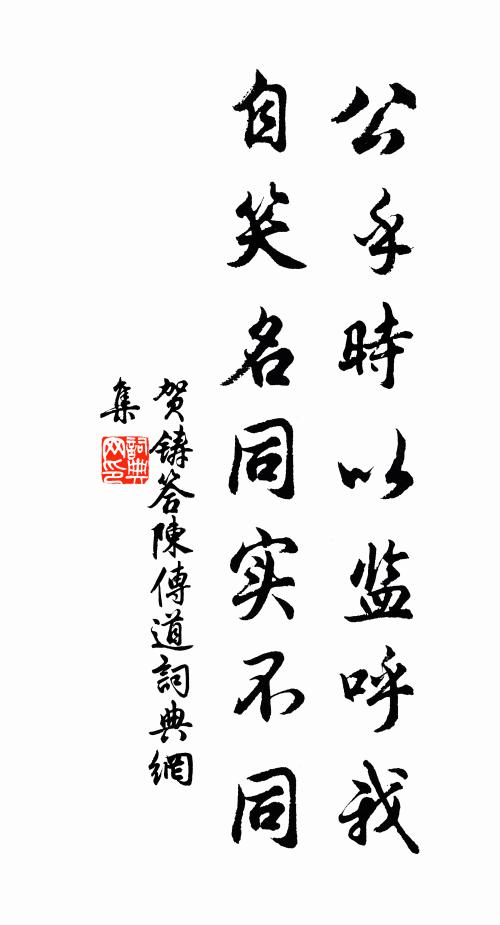 公乎時以监呼我
自笑名同实不同
贺鑄答陳傳道詞典網
集
詞典
网印